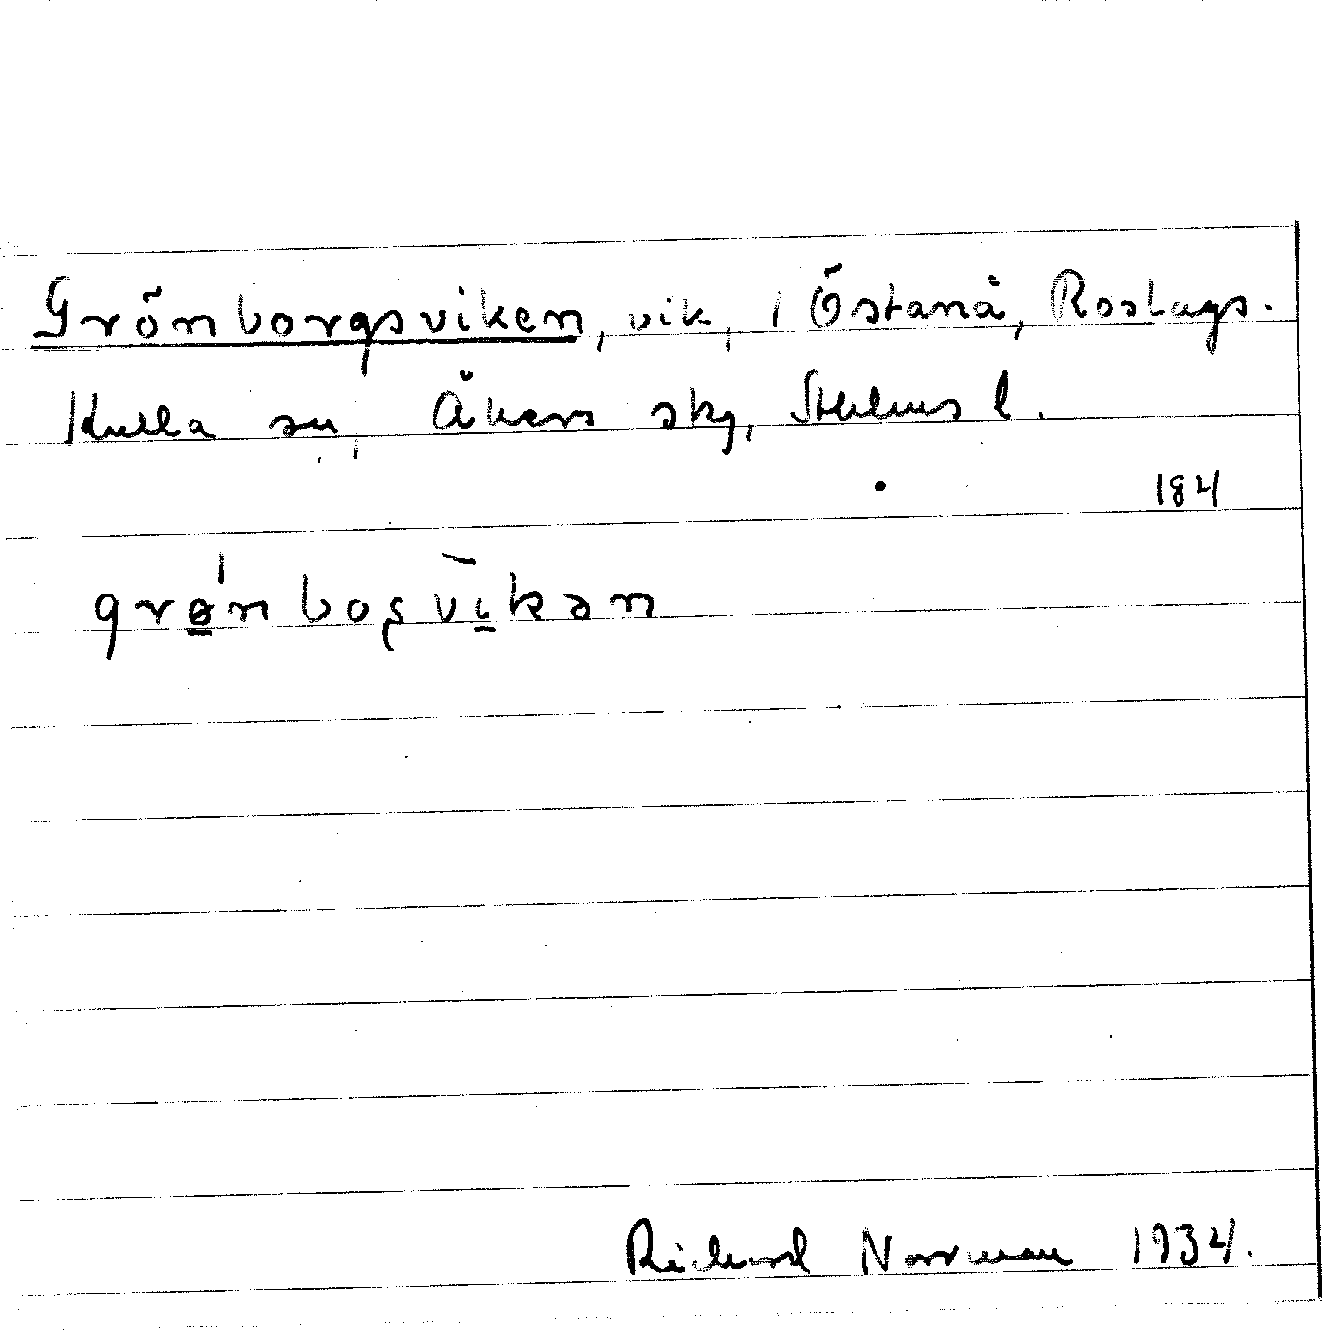 Grönborgsviken, vik, i Östanå, Roslags.
Kulla sn, Åkers skg, Sthlms l.
184
grǿ̱nbos̨vì̱kən
Richard Norrman 1934.